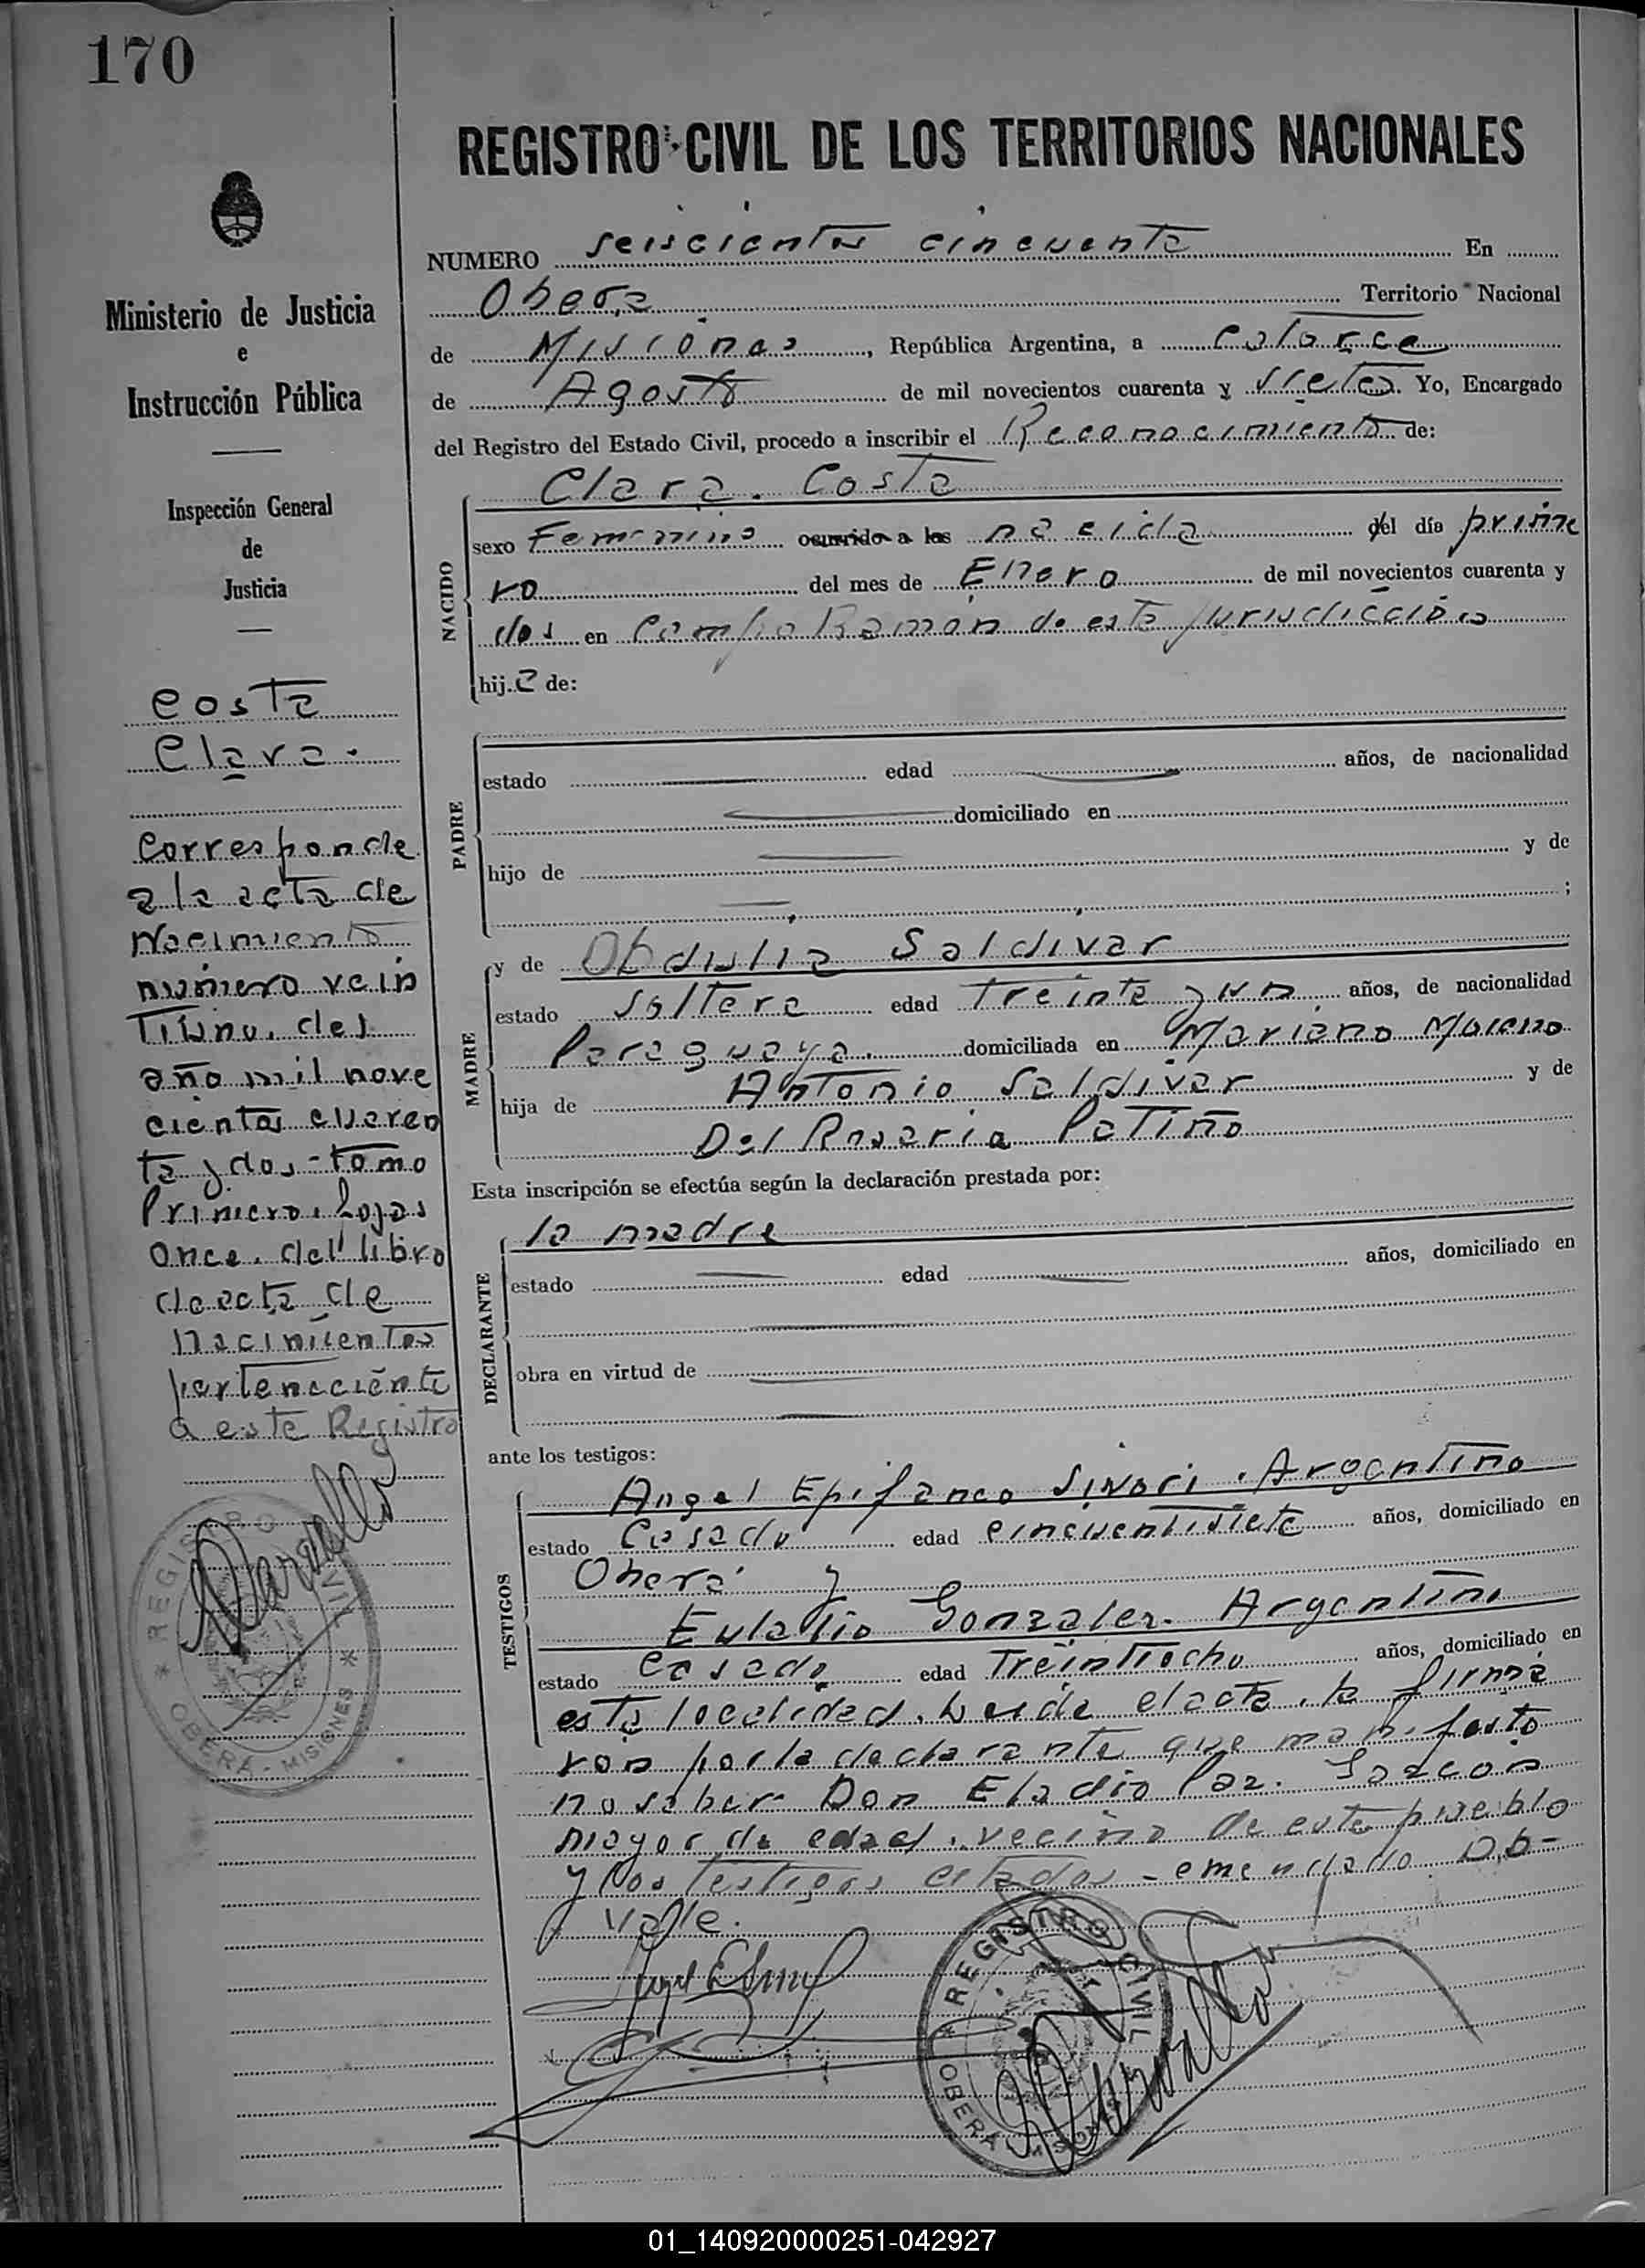 170
REGISTRO CIVIL DE LOS TERRITORIOS NACIONALES
Ministerio de Justicia
e
Instrucción Pública
Inspección General
de
Justicia
Costa
Clara.
Corresponde
a la acta de
Nacimiento
número vein
tiuno. del
año mil nove
cientos cuaren
ta y dos - tomo
Primero. hojas
once. del libro
de acta de
nacimientos
perteneciente
a este Registro
REGISTRO CIVIL
* OBERA - MISIONES *
NUMERO seiscientos cincuenta En
Obera Territorio Nacional
de Misiones, República Argentina, a catorce
de Agosto de mil novecientos cuarenta y siete. Yo, Encargado
del Registro del Estado Civil, procedo a inscribir el Reconocimiento de:
Clara. Costa
NACIDO
sexo Femenino ocurrido a las nacida del día prime
ro del mes de Enero de mil novecientos cuarenta y
dos en Campo Ramón de esta jurisdicción
hija de:
PADRE
estado edad años, de nacionalidad
domiciliado en
hijo de y de
;
MADRE
y de Obdulia Saldivar
estado soltera edad treinta y un años, de nacionalidad
Paraguaya. domiciliada en Mariano Moreno
hija de Antonio Saldivar y de
Del Rosaria Patiño
Esta inscripción se efectúa según la declaración prestada por:
DECLARANTE
la madre
estado edad años, domiciliado en
obra en virtud de
ante los testigos:
TESTIGOS
Angel Epifaneo Sivori. Argentino
estado Casado edad cincuentisiete años, domiciliado en
Oberá y
Eulalio Gonzalez. Argentino
estado casado edad treintiocho años, domiciliado en
esta localidad. Leida el acta. la firma
ron por la declarante que manifesto
no saber Don Eladio Paz.
mayor de edad. vecino de este pueblo
y los testigos citados - emendado
Valle.
REGISTRO CIVIL
OBERA
01_140920000251-042927